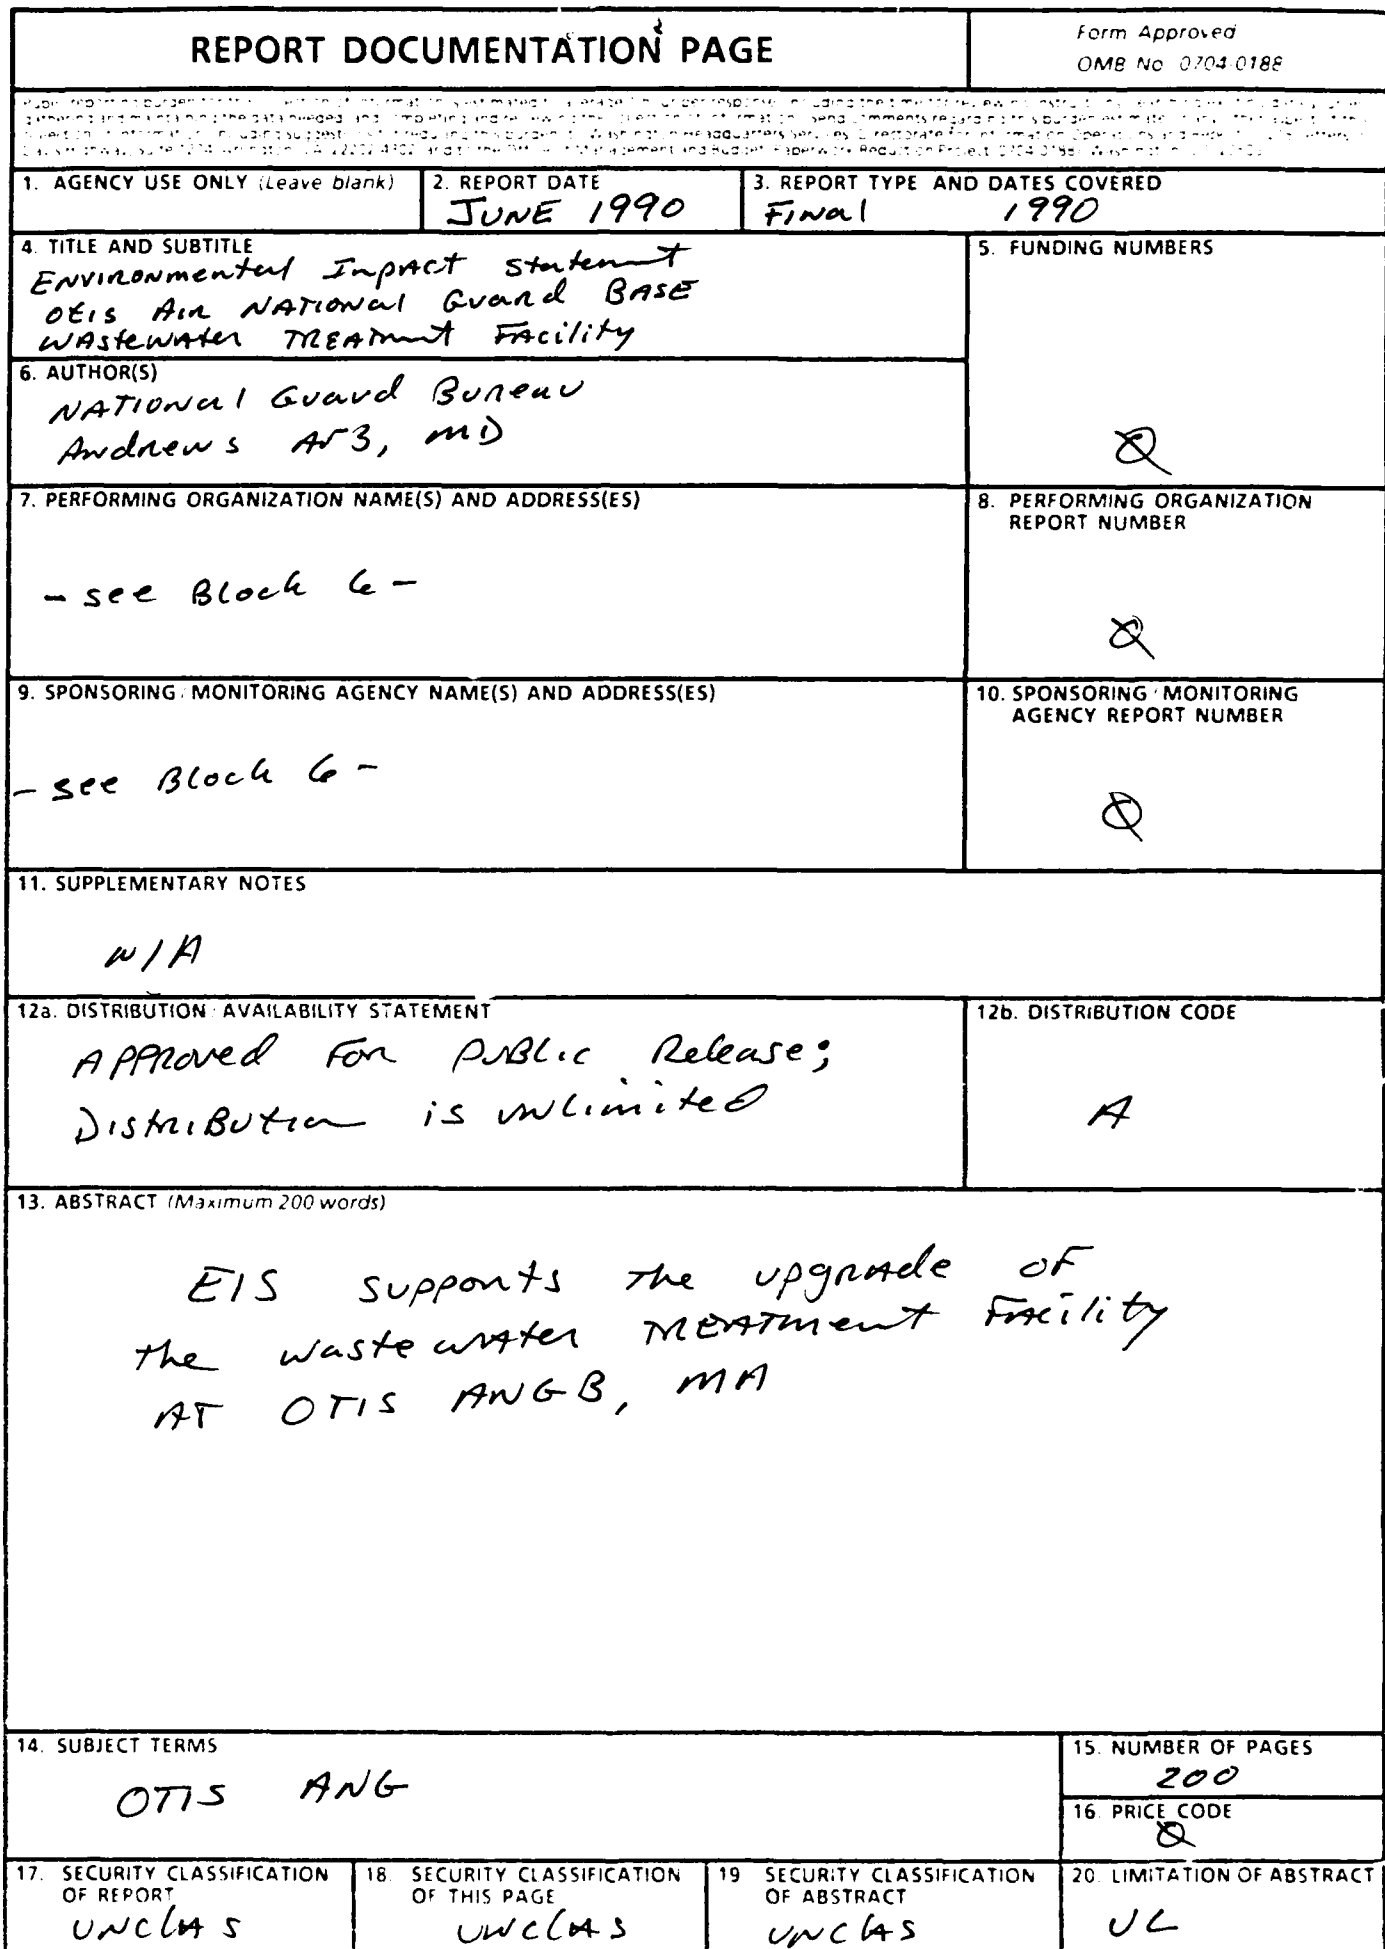 REPORT DOCUMENTATION PAGE
Form Approved
OMB No 0704-0188
1. AGENCY USE ONLY (Leave blank)
2. REPORT DATE
JUNE 1990
3. REPORT TYPE AND DATES COVERED
Final 1990
4. TITLE AND SUBTITLE
Environmental Inpact Statement
Otis Air National Guard Base
Wastewater Treatment Facility
5. FUNDING NUMBERS
Ø
6. AUTHOR(S)
National Guard Bureau
Andrews AFB, MD
7. PERFORMING ORGANIZATION NAME(S) AND ADDRESS(ES)
- see Block 6 -
8. PERFORMING ORGANIZATION
REPORT NUMBER
Ø
9. SPONSORING/MONITORING AGENCY NAME(S) AND ADDRESS(ES)
- see Block 6 -
10. SPONSORING/MONITORING
AGENCY REPORT NUMBER
Ø
11. SUPPLEMENTARY NOTES
N/A
12a. DISTRIBUTION/AVAILABILITY STATEMENT
Approved for Public Release;
Distribution is unlimited
12b. DISTRIBUTION CODE
A
13. ABSTRACT (Maximum 200 words)
EIS supports the upgrade of
the wastewater Treatment Facility
AT OTIS ANGB, MA
14. SUBJECT TERMS
OTIS ANG
15. NUMBER OF PAGES
200
16. PRICE CODE
Ø
17. SECURITY CLASSIFICATION
OF REPORT
UNCLAS
18. SECURITY CLASSIFICATION
OF THIS PAGE
UNCLAS
19 SECURITY CLASSIFICATION
OF ABSTRACT
UNCLAS
20. LIMITATION OF ABSTRACT
UL